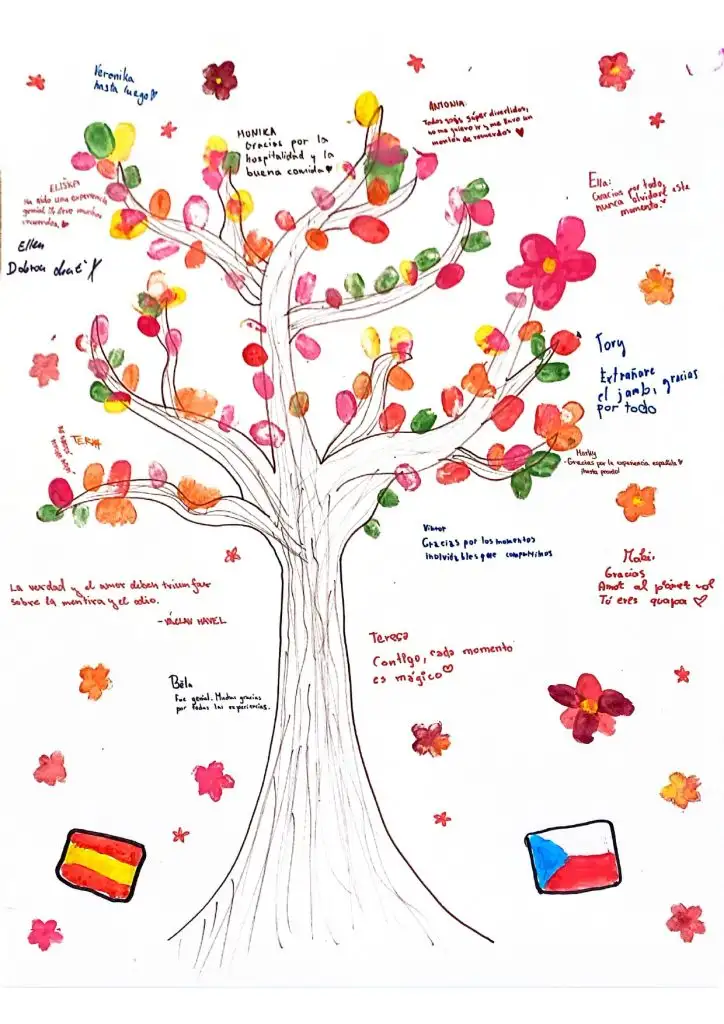 Veronika
hasta luego
MONIKA
Gracias por la
hospitalidad y la
buena comida
ANTONIA:
Todos sois súper divertidos,
no me quiero ir y me llevo un
montón de recuerdos
ELIŠKA
Ha sido una experiencia
genial. Me llevo muchos
recuerdos.
Ella:
Gracias por todo,
nunca olvidaré este
momento.
Ellen
Dobrou chuť
Tory
Extrañare
el jambi, gracias
por todo
TERKA
Marky
-Gracias por la experiencia española
¡hasta pronto!
Viktor
Gracias por los momentos
inolvidables que compartimos
Gracias
Amot al
Tú eres guapa
La verdad y el amor deben triunfar
sobre la mentira y el odio.
-VÁCLAV HAVEL
Teresa
Contigo, cada momento
es mágico
Béla
Fue genial. Muchas gracias
por todas las experiencias.